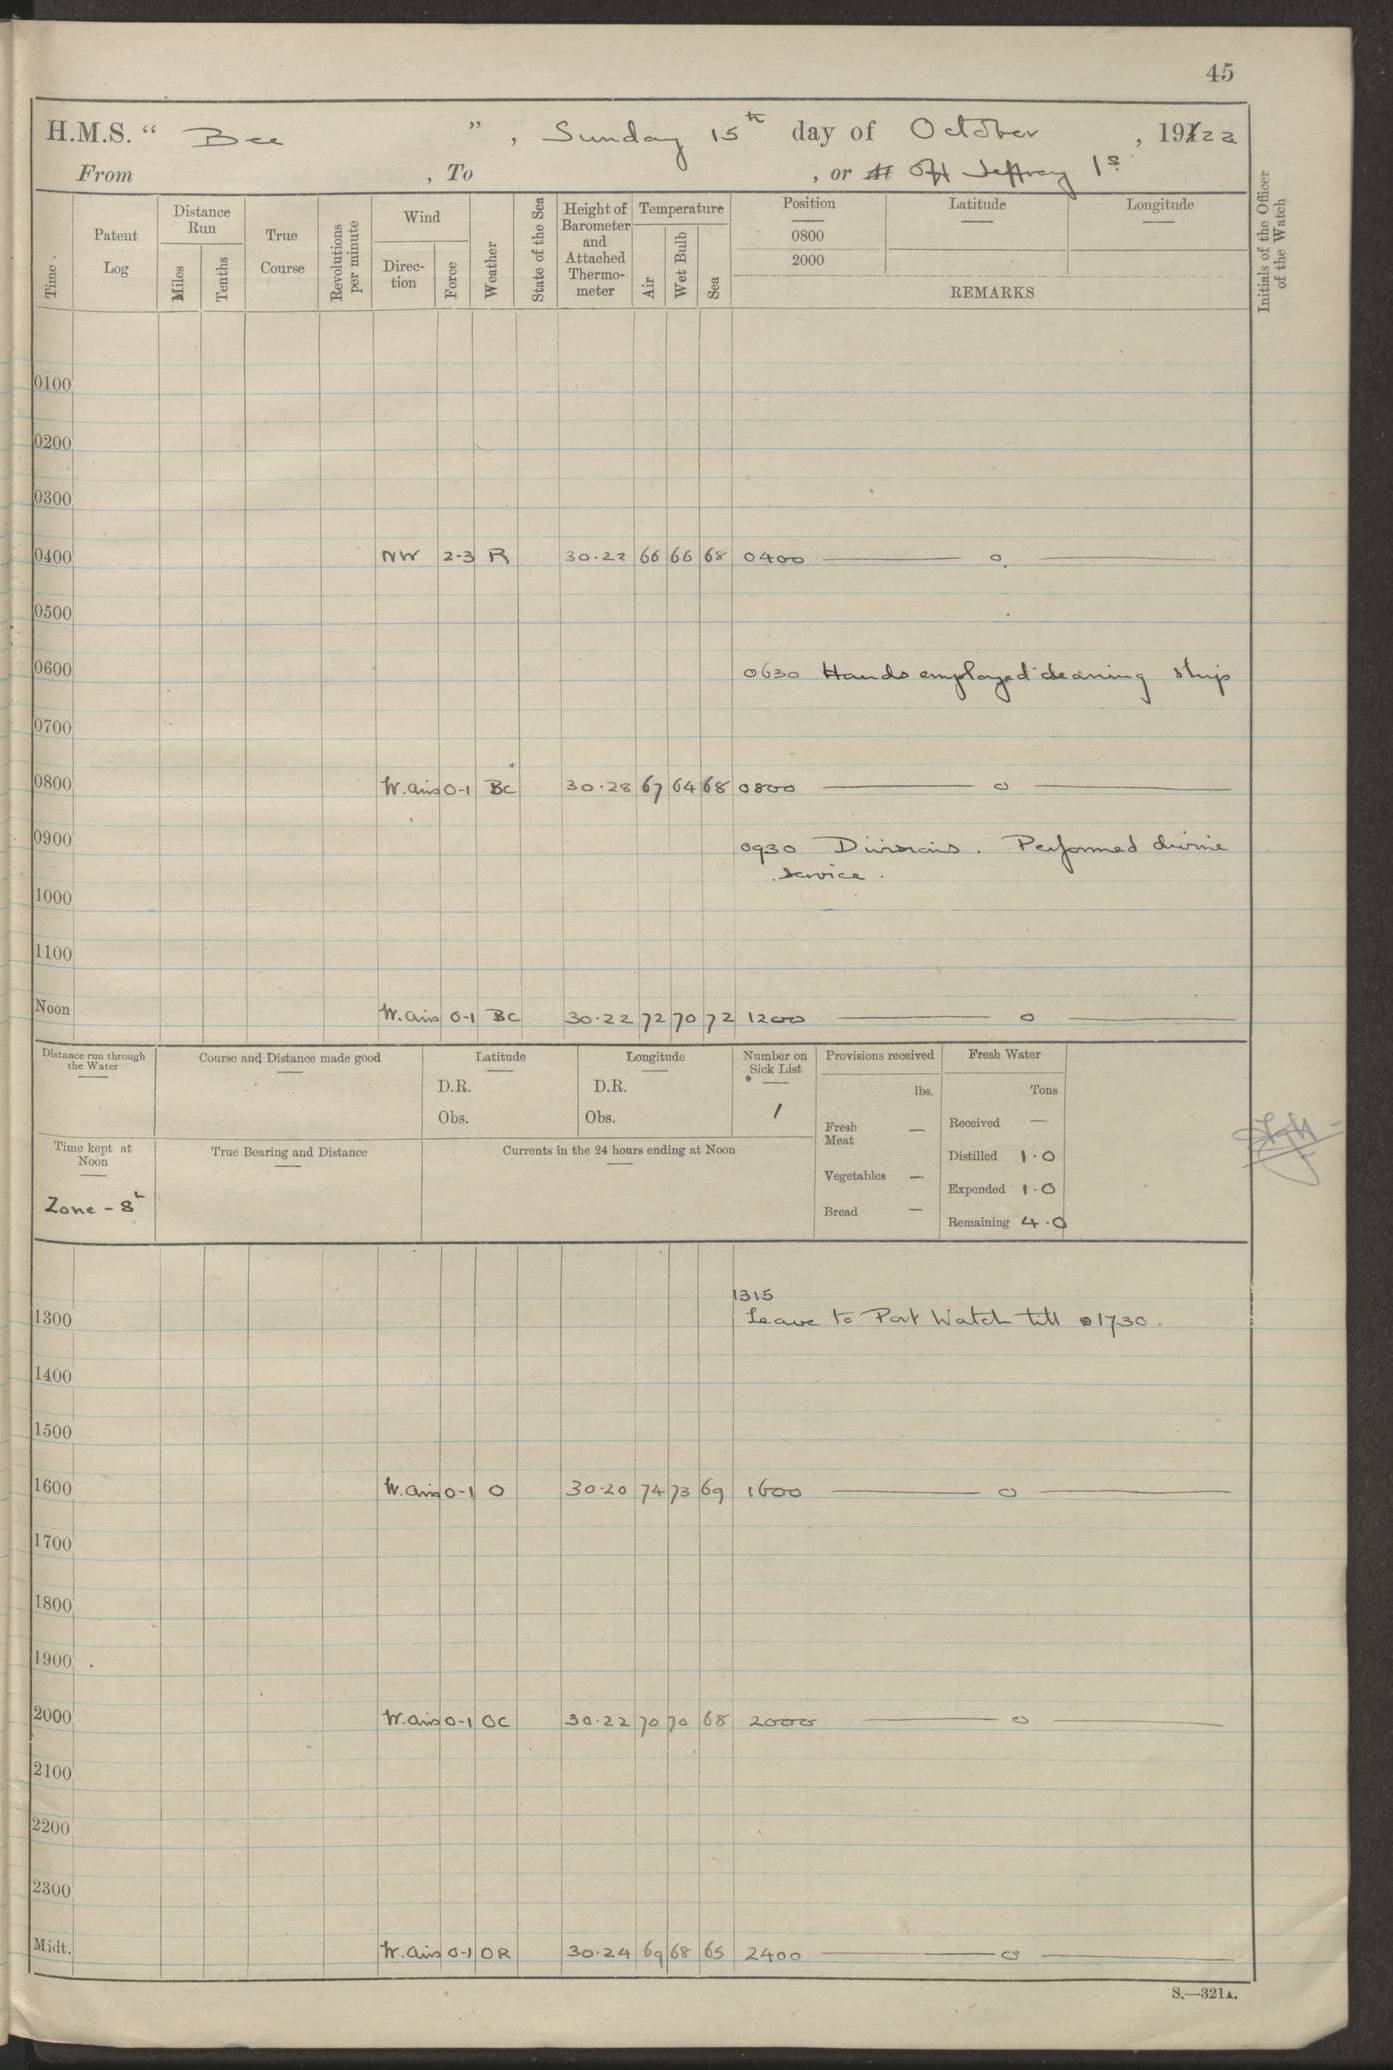 45
H.M.S. “ Bee ” , Sunday 15th day of October , 1922
From , To , or at Off Jeffray Is
Time. Patent Log Distance Run Miles Tenths True Course Revolutions per minute Wind Direc-tion Force Weather State of the Sea Height of Barometer and Attached Thermo-meter Temperature Air Wet Bulb Sea Position Latitude Longitude Initials of the Officer of the Watch
0800
2000
REMARKS
0100
0200
0300
0400 NW 2-3 R 30.22 66 66 68 0400 — o —
0500
0600
0630 Hands employed cleaning ship
0700
0800 W. airs 0-1 BC 30.28 67 64 68 0800 — o —
0900
0930 Divisions. Performed divine
service.
1000
1100
Noon W. airs 0-1 BC 30.22 72 70 72 1200 — o —
Distance run through the Water Course and Distance made good Latitude Longitude Number on Sick List Provisions received Fresh Water
D.R. D.R. lbs. Tons
Obs. Obs. 1 Fresh Meat — Received —
Time kept at Noon True Bearing and Distance Currents in the 24 hours ending at Noon Distilled 1.0
Vegetables — Expended 1.0
Zone - 8h Bread — Remaining 4.0
1315
1300 Leave to Port Watch till 1730.
1400
1500
1600 W. airs 0-1 O 30.20 74 73 69 1600 — o —
1700
1800
1900
2000 W. airs 0-1 OC 30.22 70 70 68 2000 — o —
2100
2200
2300
Midt. W. airs 0-1 OR 30.24 69 68 65 2400 — o —
S.—321A.